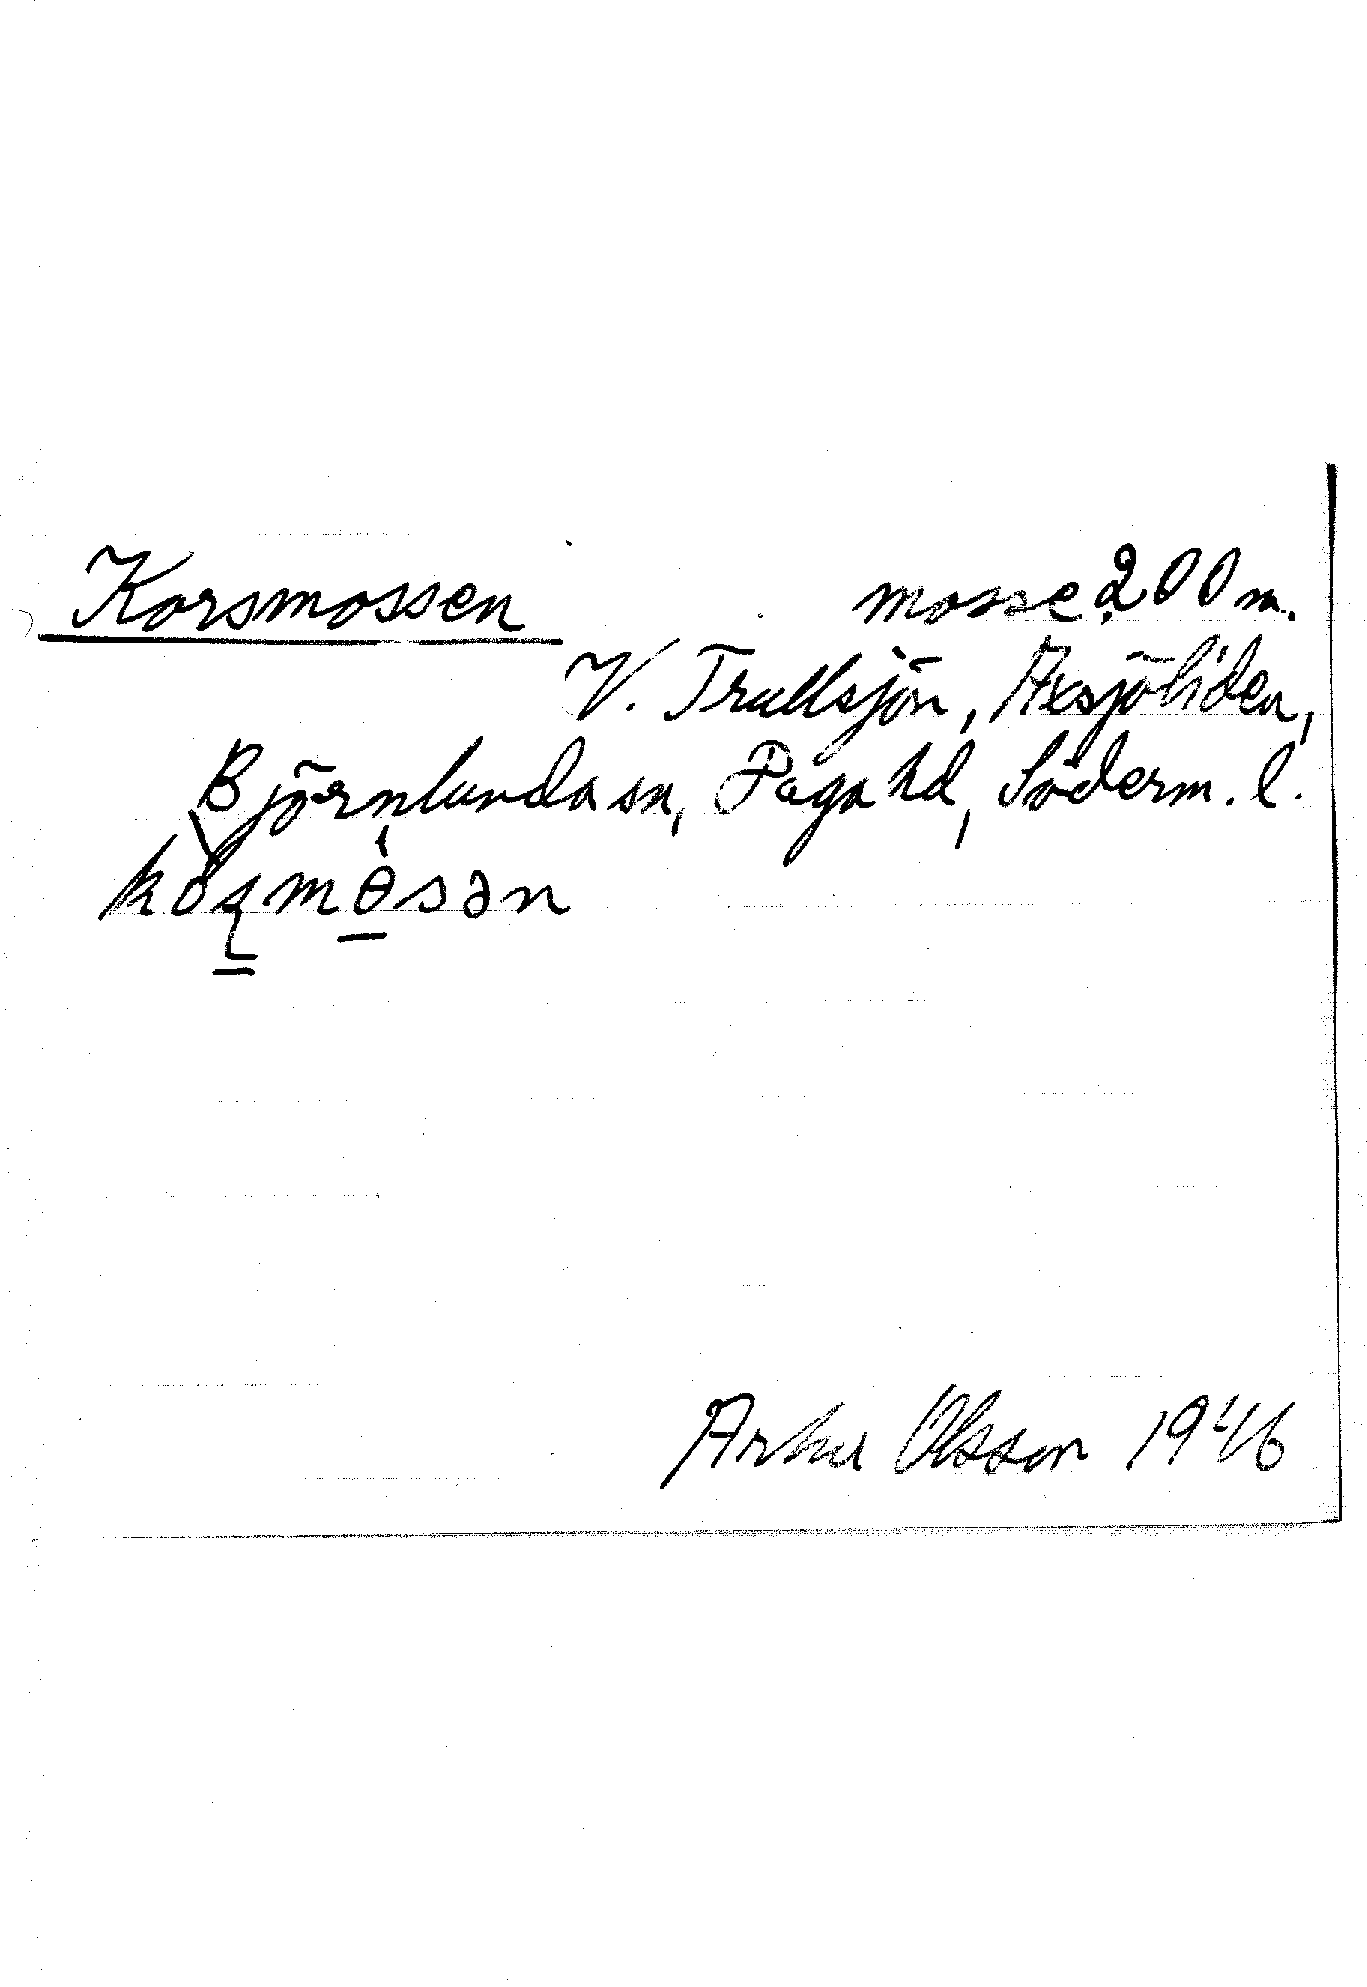 Korsmossen mosse 200 m.
V. Trullsjön, Axsjöliden,
Björnlunda sn, Daga hd, Söderm. l.
Arthur Olsson 1946